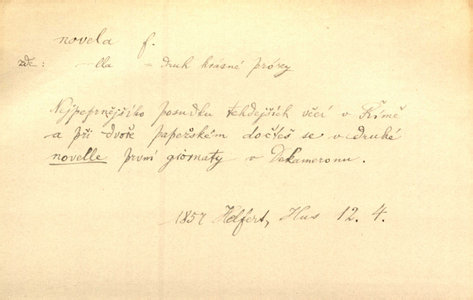 novela f.
zde: -lla - druh krásné prózy
Nejpeprnějšího posudku tehdejších věcí v Římě
a při dvoře papežském dočteš se v druhé
novelle první giornaty v Dekameronu.
1857 Helfert, Hus 12. 4.